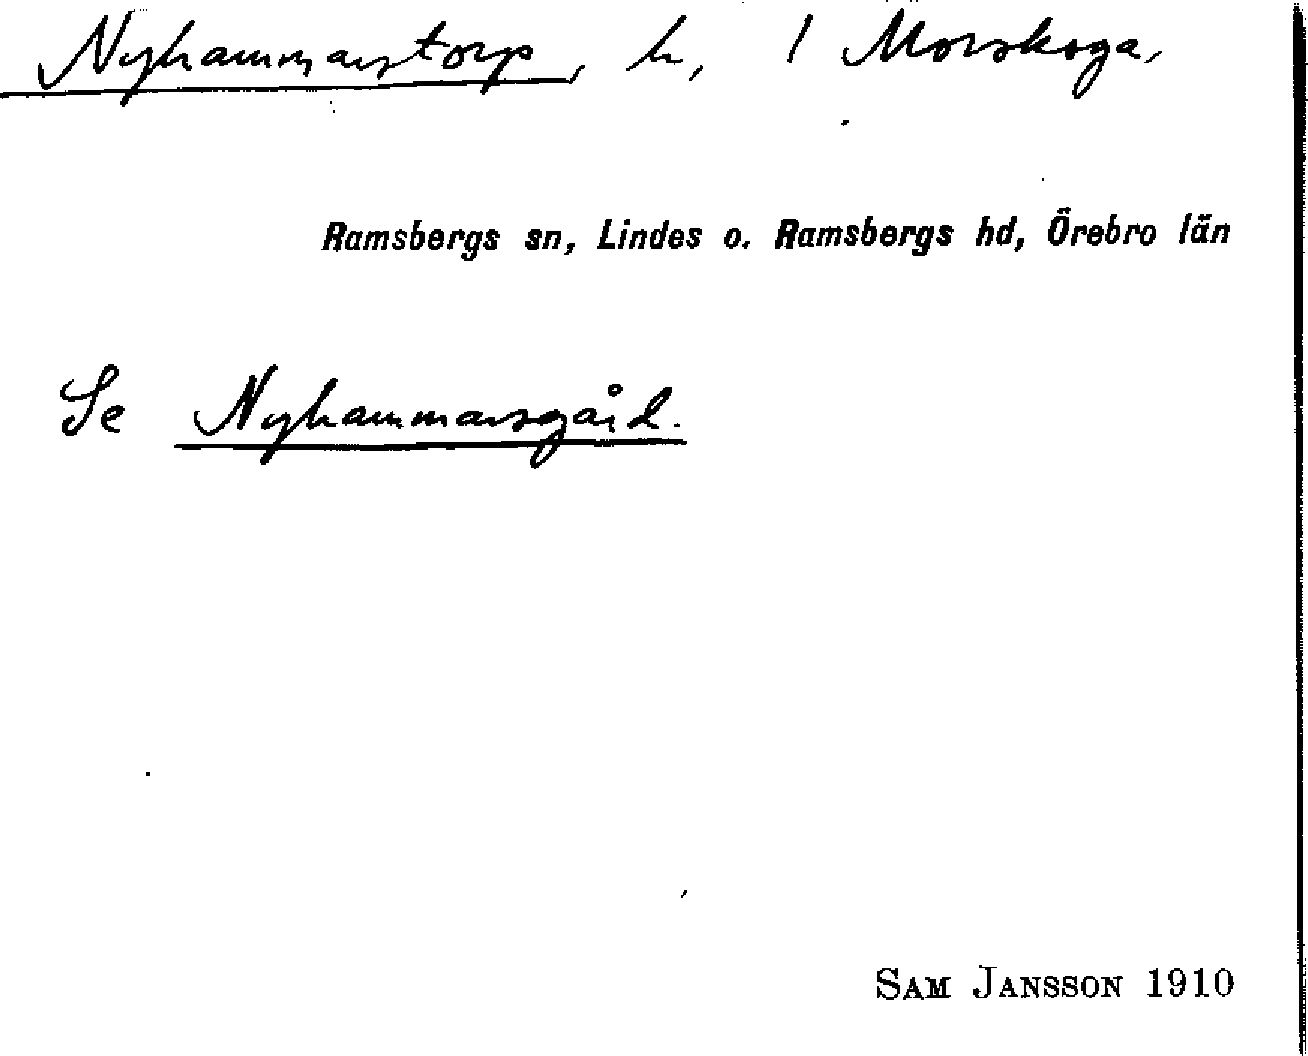 Nyhammarstorp, h, 1 Morskoga,
Ramsbergs sn, Lindes o. Ramsbergs hd, Örebro län
Se Nyhammarsgård.
SAM JANSSON 1910